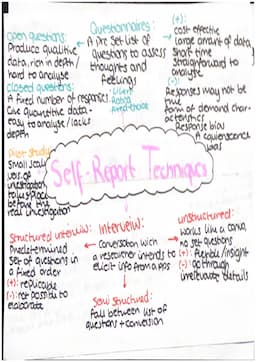 Open questions:
Produce qualitive
data, rich in depth/
hard to analyse
closed questions:
A fixed number of responces
Give quantitive data -
easy to analyse / lacks
depth
Pilot study:
Small scale
vers. of
investigation
takes place
before the
real investigation
Questionnaires:
A pre set list of
questions to assess
thoughts and
feelings
Likert
Rating
fixed-choice
(+):
cost effective
Large amount of data
Short time
Straightforward to
analyse
(-):
Responses may not be
true
form of demand char-
acteristics
Response bias
Acquiescence
bias
Self-Report Techniques
Structured interview:
Predetermined
Set of questions in
a fixed order
(+): replicable
(-): not possible to
elaborate
Interview:
Conversation with
a researcher intends to
elicit info from a pps
Semi structured:
fall between list of
questions + conversion
unstructured:
works like a convo,
no set questions
(+): flexible/insight
(-): go through
irrelevante details